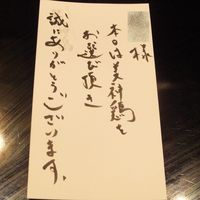 様
本日は美神鶏を
お選び頂き
誠にありがとうございます。